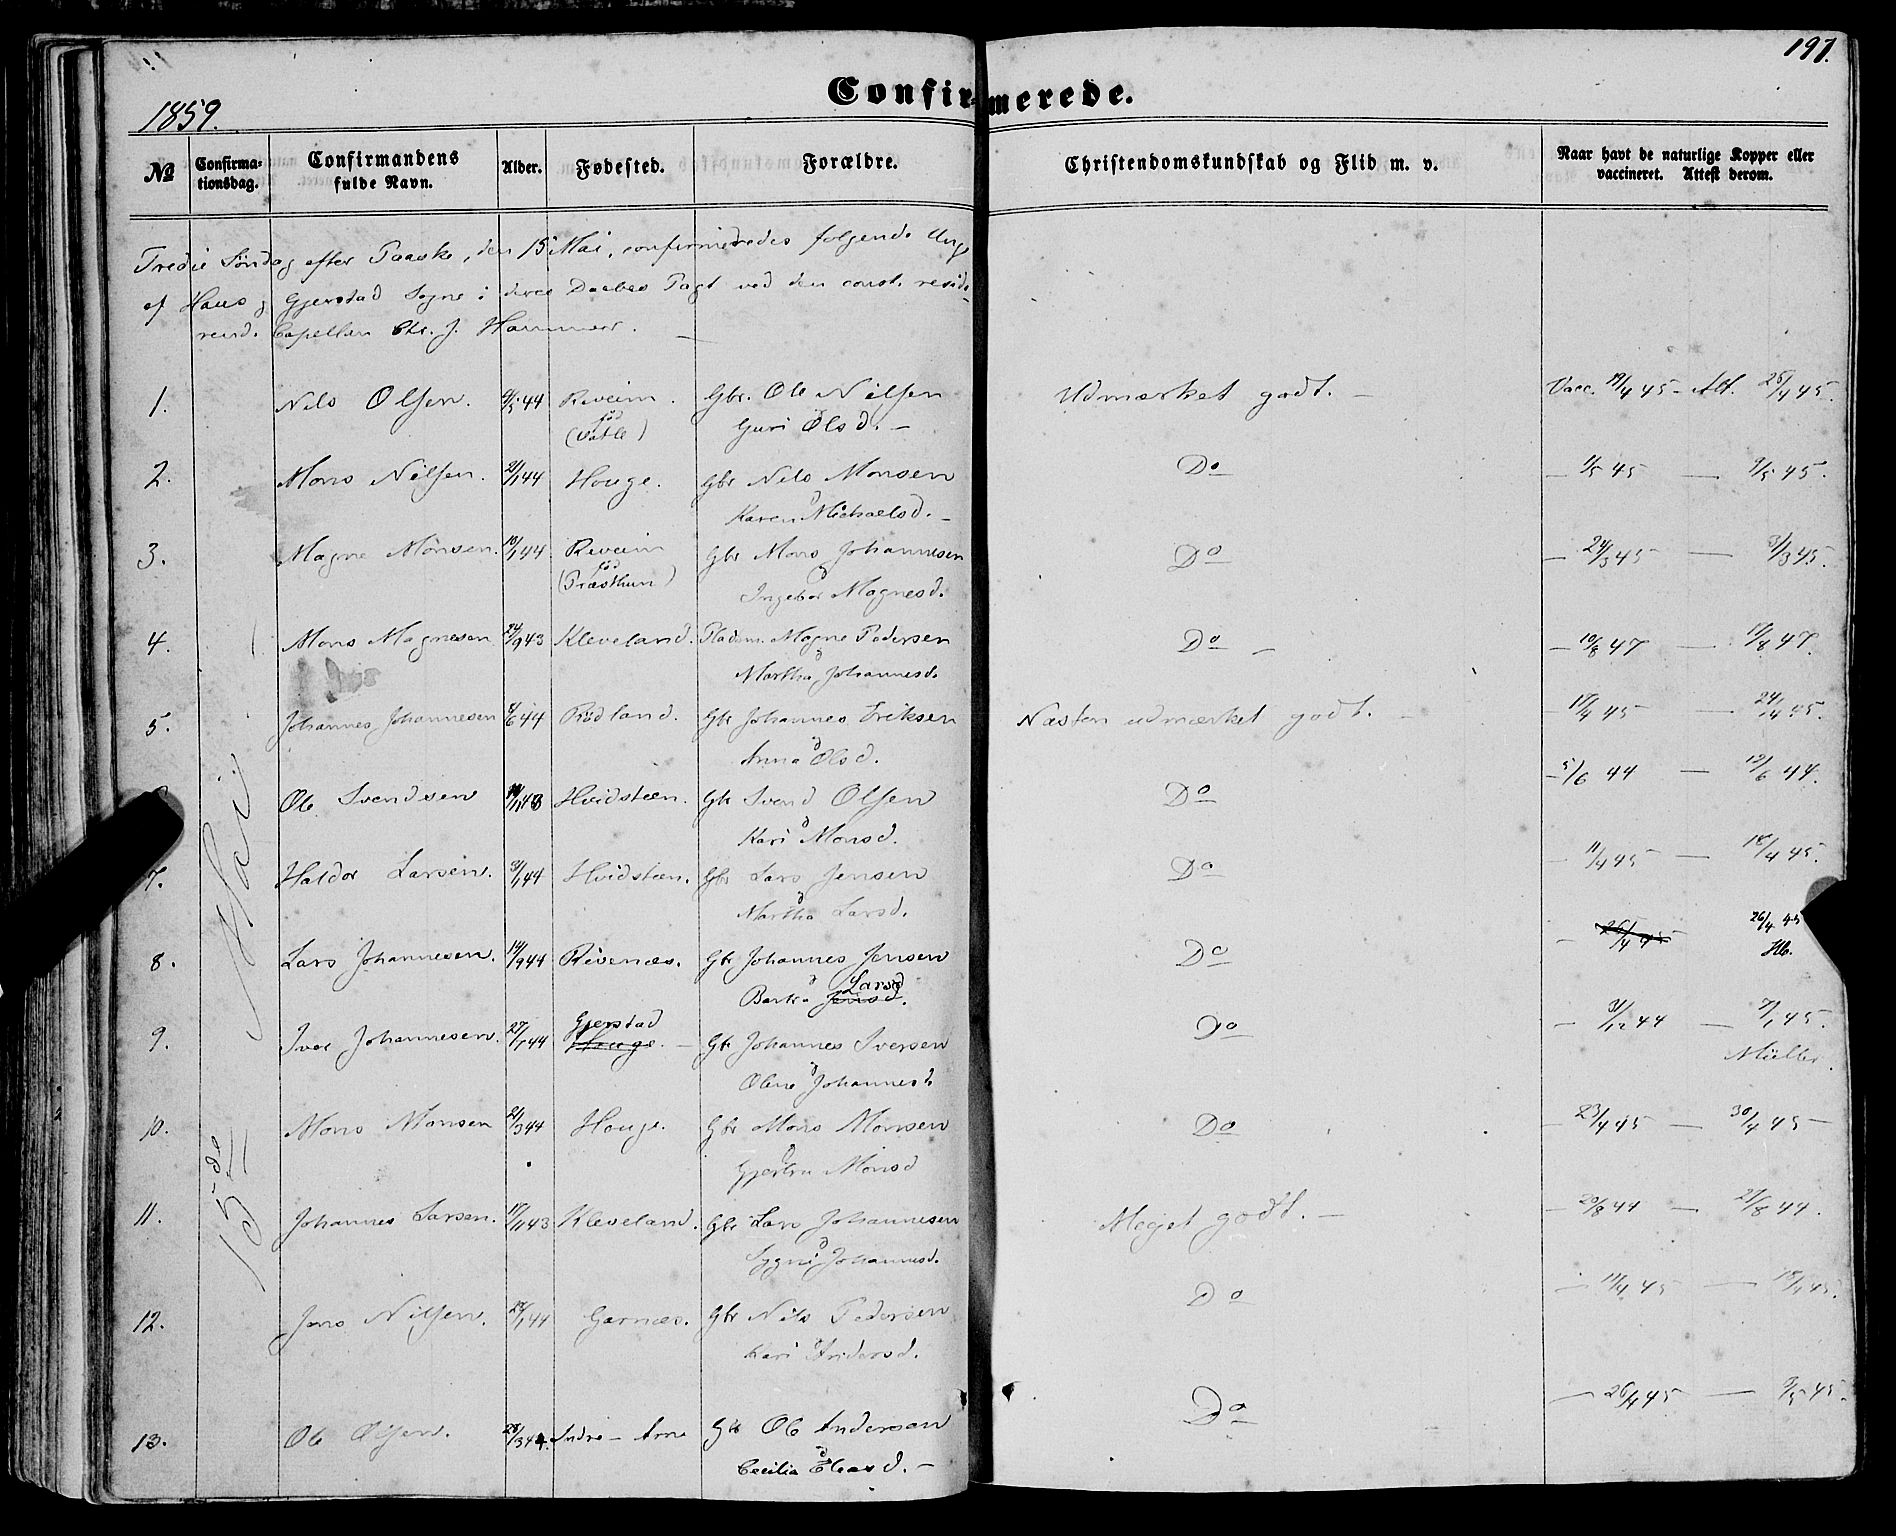 197.
Confirmerede.
1859.
№ Confirma-tionsdag. Confirmandens fulde Navn. Alder. Fødested. Forældre. Christendomskundskab og Flid m. v. Naar havt de naturlige Kopper eller vaccineret. Attest derom.
Tredie Søndag efter Paaske, den 15 Mai, confirmeredes følgende Unge
af Haus og Gjerstad Sogne i deres Daabes Pagt ved den const. reside-
rend. Capellan Chr. J. Hammer.
15de Mai
1. Nils Olsen. 44 Reveim. Gbr. Ole Nilsen Udmærket godt. — Vacc. 19/4 45 — Att. 25/4 45.
(fød Vatle) Guri Olsd. —
2. Mons Nilsen. 21/1 44 Houge. Gbr Nils Monsen Do — 1/5 45 — 9/5 45.
Karen Michaelsd. —
3. Magne Monsen. 10/1 44 Reveim Gbr Mons Johannesen Do — 24/3 45 — 31/3 45.
(fød Præsthun) Ingebor Magnesd.
4. Mons Magnesen 24/9 43 Kleveland. Pladsm. Magne Pedersen Do — — 10/8 47 — 17/8 47.
Martha Johannesd.
5. Johannes Johannesen 6/6 44 Rødland. Gbr Johannes Eriksen Næsten udmærket godt. — — 17/4 45 — 24/4 45.
Anna Olsd.
Ole Svendsen 43 Hvidsteen. Gbr Svend Olsen Do — 5/6 44 — 12/6 44.
Kari Monsd.
7. Haldor Larsen. 31/1 44 Hvidsteen. Gbr Lars Jensen Do — 11/4 45 — 18/4 45.
Martha Larsd.
8. Lars Johannesen. 14/9 44 Revenæs. Gbr Johannes Jensen Do — 26/4 45 26/4 45
Larsd Hb.
Jensd.
9. Iver Johannesen. 27/1 44 Gjerstad Houge. — Gbr Johannes Iversen Do — 31/12 44 — 7/1 45.
Olene Johannesd. Müller.
10. Mons Monsen 21/3 44 Houge. Gbr Mons Monsen Do — 23/4 45 — 30/4 45 —
Gjertru Monsd
11. Johannes Larsen. 17/11 43 Kleveland. Gbr Lars Johannesen Meget godt. — — 20/8 44 — 27/8 44.
Sygni Johannesd.
12. Jens Nilsen. 28/1 44 Garnæs. Gbr Nils Pedersen Do — 11/4 45 — 18/4 45.
Kari Andersd.
13. Ole Olsen. 28/3 44. Indre-Arne Gbr Ole Andersen Do — 26/4 45 — 3/5 45.
Cecilia Eliasd. —